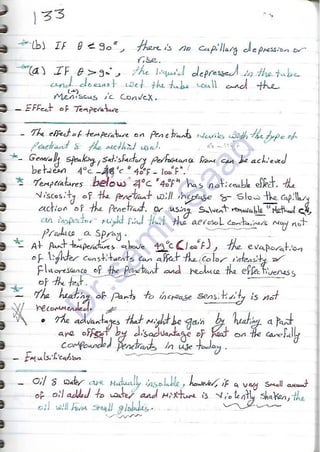 133
(b) IF θ < 90°, there is no capillary depression or
rise.
(a) IF θ > 90°, the liquid depressed in the tube
and doesn't wet the tube wall and the
Meniscus is convex.
- Effect of Temperature
- The effect of temperature on Penetrants varies with the type of
Penetrant & the method used.
- Generally speaking, satisfactory performance from can be achieved
between 4°C - °C "40°F - 100°F".
Temperatures below 4°C "40°F" has noticeable effect. the
Viscosity of the Penetrant will increase & Slow the capillary
action of the Penetrant or using Solvent removable "Method C",
an inspector might find that the aerosol containers may not
Produce a spray.
At Part temperatures above °C (100°F), the evaporation
of lighter constituents can affect the color intensity or
Fluorescence of the Penetrant and reduce the effectiveness
of the test.
- The heating of Parts to increase sensitivity is not
recommended.
• The advantages that might be gain by heating a Part
are offset by disadvantage of heat on the carefully
compounded Penetrants in use today.
- Emulsification
- Oil & water are mutually insoluble, however, if a very small amount
of oil added to water and Mixture is Violently shaken, the
oil will form small globules.